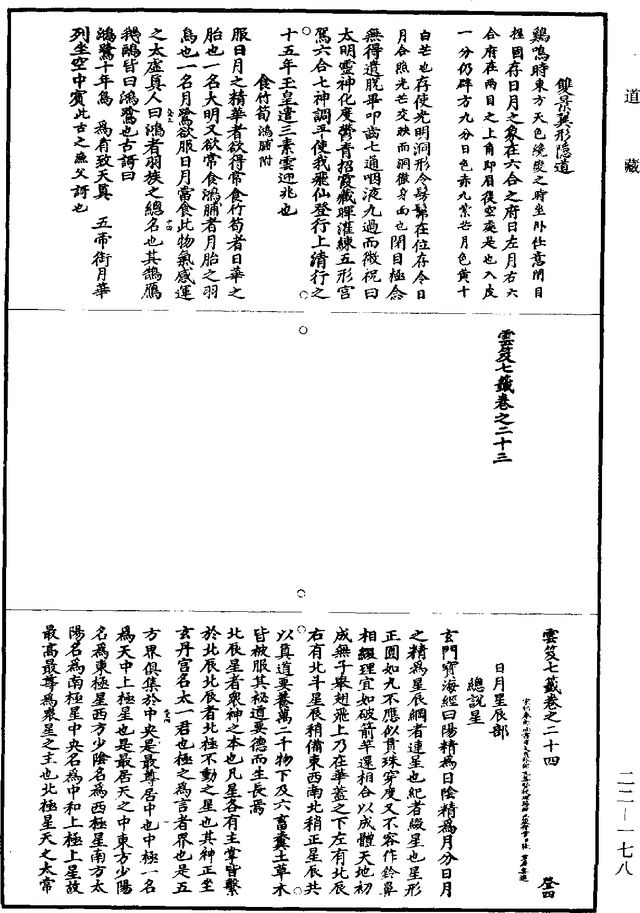 道藏
雙景翼形隱道
鷄鳴時東方天色纔變之時坐卧任意閉目
挃園存日月之象在六合之府日左月右六
合府在兩目之上角即眉後空處是也入皮
一分仍辟方九分日色赤九紫芒月色黄十
白芒也存使光明洞形令髣髴在位存令日
月合照光芒交映而洞徹身面也閉目極念
無得遺脱畢叩齒七通咽液九過而微祝曰
太明靈神化度鬱青招霞藏暉濯練五形宫
駕六合七神調平使我飛仙登行上清行之
十五年玉皇遣三素雲迎兆也
食竹筍鴻脯附
服日月之精華者欲得常食竹筍者日華之
胎也一名大明又欲常食鴻脯者月胎之羽
鳥也一名月鷺欲服日月當食此物氣感運
之太虚真人曰鴻者羽族之總名也其鵠鴈
鵝鷗皆曰鴻鷺也古謌曰
鴻鷺十年鳥　爲有致天真　五帝銜月華
列坐空中賓此古之漁父謌也
雲笈七籤卷之二十三
雲笈七籤卷之二十四　登四
日月星辰部
總說星
玄門寶海經曰陽精爲日陰精爲月分日月
之精爲星辰綱者連星也紀者綴星也星形
正圓如丸不應似貫珠穿度又不容作鈴鼻
相綴理宜如破箭竿還相合以成體天地初
成無子舉翅飛上乃在華蓋之下左有北辰
右有北斗星辰稍備東西南北稍正星辰共
以真道要養萬二千物下及六畜糞土草木
皆被服其極道要德而生長焉
北辰星者衆神之本也凡星各有主掌皆繫
於北辰北辰者北極不動之星也其神正坐
玄丹宫名太一君也極之爲言者界也是五
方界俱集於中央是最尊居中也中極一名
爲天中上極星也是最居天之中東方少陽
名爲東極星西方少陰名爲西極星南方太
陽名爲南極星中央名爲中和上極上星故
最高最尊爲衆星之主也北極星天之太常
二二—一七八